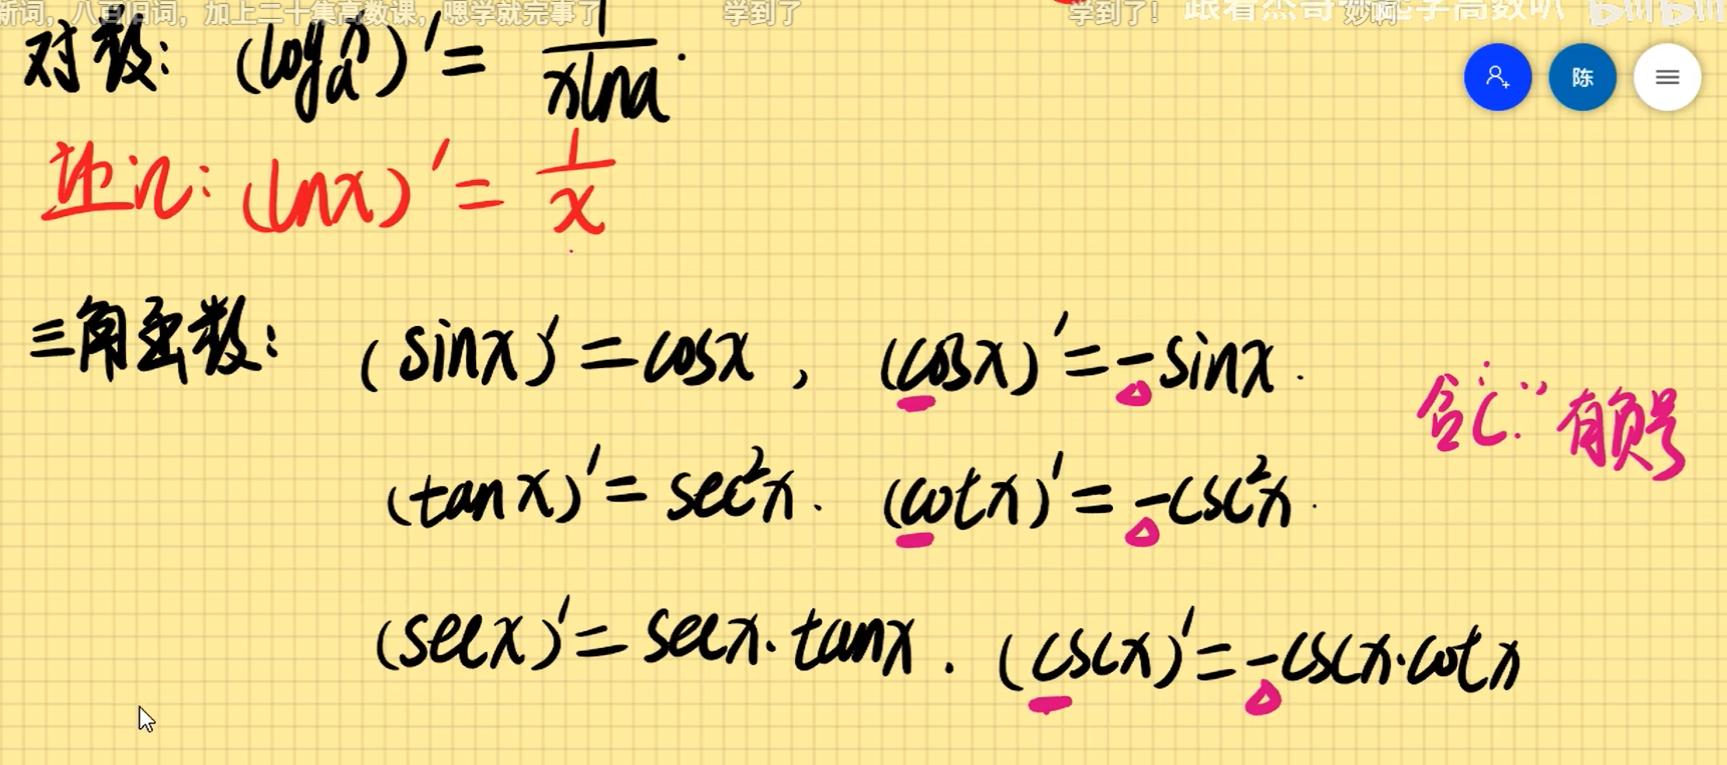 新词，八百旧词，加上二十集高数课，嗯学就完事了 学到了 学到了！ 妙啊
跟着杰哥一起学高数叭 bilibili
陈
对数： (logₐx)' = 1/(xlna).
(lnx)' = 1/x
三角函数： (sinx)' = cosx , (cosx)' = -sinx.
含“c”有负号
(tanx)' = sec²x. (cotx)' = -csc²x.
(secx)' = secx·tanx. (cscx)' = -cscx·cotx